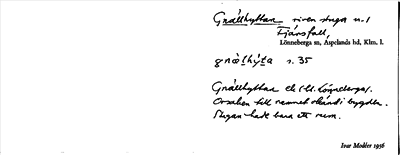 Gnällhyttan riven stuga n. 1
Fjärsfall,
Lönneberga sn, Aspelands hd, Klm. l.
s. 35
Gnällhyttan ek (bl. Lönneberga).
Orsaken till namnet okänd i bygden.
Stugan hade bara ett rum.
Ivar Modéer 1936